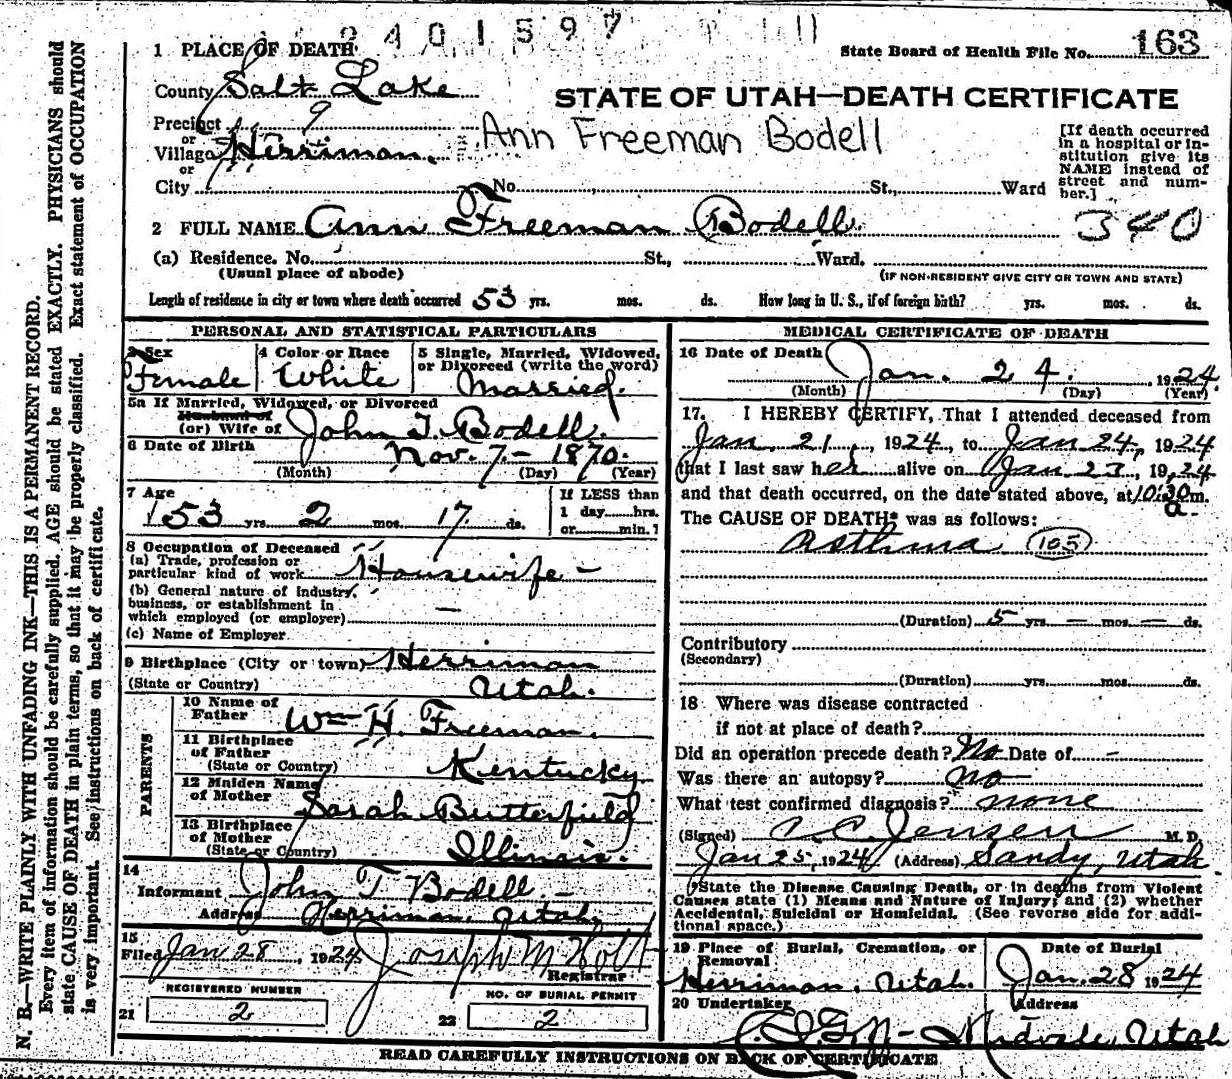 2401597
1 PLACE OF DEATH
State Board of Health File No. 163
County Salt Lake
STATE OF UTAH—DEATH CERTIFICATE
Precinct 9
or
Village Herriman.
Ann Freeman Bodell
or
City No. St., Ward
[If death occurred in a hospital or institution give its NAME instead of street and number.]
2 FULL NAME Ann Freeman Bodell.
340
(a) Residence. No. St., Ward.
(Usual place of abode) (IF NON-RESIDENT GIVE CITY OR TOWN AND STATE)
Length of residence in city or town where death occurred 53 yrs. mos. ds. How long in U. S., if of foreign birth? yrs. mos. ds.
PERSONAL AND STATISTICAL PARTICULARS
3 Sex
Female
4 Color or Race
White
5 Single, Married, Widowed, or Divorced (write the word)
Married.
5a If Married, Widowed, or Divorced
Husband of
(or) Wife of John T. Bodell.
6 Date of Birth Nov. 7 - 1870.
(Month) (Day) (Year)
7 Age
53 yrs. 2 mos. 17 ds.
If LESS than
1 day hrs.
or min.?
8 Occupation of Deceased
(a) Trade, profession or
particular kind of work Housewife -
(b) General nature of industry,
business, or establishment in
which employed (or employer) —
(c) Name of Employer
9 Birthplace (City or town) Herriman
(State or Country) Utah.
PARENTS
10 Name of
Father Wm H. Freeman.
11 Birthplace
of Father
(State or Country) Kentucky
12 Maiden Name
of Mother Sarah Butterfield
13 Birthplace
of Mother
(State or Country) Illinois.
14
Informant John T. Bodell -
Address Herriman, Utah.
15
Filed Jan 28, 1924 Joseph M Holt
Registrar
REGISTERED NUMBER
21 2
NO. OF BURIAL PERMIT
22 2
MEDICAL CERTIFICATE OF DEATH
16 Date of Death Jan. 24. 1924.
(Month) (Day) (Year)
17. I HEREBY CERTIFY, That I attended deceased from
Jan. 21, 1924, to Jan 24, 1924
that I last saw her alive on Jan 23, 1924
and that death occurred, on the date stated above, at 10:30 a. m.
The CAUSE OF DEATH* was as follows:
Asthma (105)
(Duration) 5 yrs. — mos. — ds.
Contributory
(Secondary)
(Duration) yrs. mos. ds.
18 Where was disease contracted
if not at place of death?
Did an operation precede death? No Date of -
Was there an autopsy? no
What test confirmed diagnosis? none
(Signed) Jensen M. D.
Jan 25, 1924 (Address) Sandy, Utah
*State the Disease Causing Death, or in deaths from Violent
Causes state (1) Means and Nature of Injury; and (2) whether
Accidental, Suicidal or Homicidal. (See reverse side for addi-
tional space.)
19 Place of Burial, Cremation, or
Removal
Herriman, Utah.
Date of Burial
Jan. 28 1924
20 Undertaker
Address
Midvale, Utah
READ CAREFULLY INSTRUCTIONS ON BACK OF CERTIFICATE
N. B.—WRITE PLAINLY WITH UNFADING INK—THIS IS A PERMANENT RECORD.
Every item of information should be carefully supplied. AGE should be stated EXACTLY. PHYSICIANS should
state CAUSE OF DEATH in plain terms, so that it may be properly classified. Exact statement of OCCUPATION
is very important. See instructions on back of certificate.